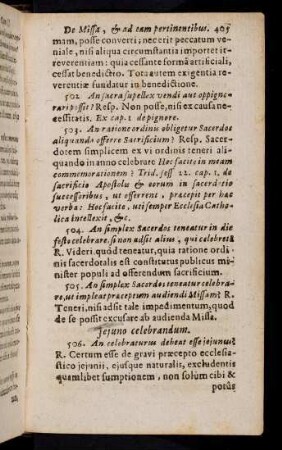 De Missa, & ad eam pertinentibus. 405
mam, posse converti; necerit peccatum ve-
niale, nisi aliqua circumstantia importet ir-
reverentiam: quia cessante forma artificiali,
cessat benedictio. Tota autem exigentia re-
verentiæ fundatur in benedictione.
502. An sacra supellex vendi aut oppigne-
rari possit? Resp. Non posse, nisi ex causa ne-
cessitatis. Ex cap. 1. de pignore.
503. An ratione ordinis obligetur Sacerdos
aliquando offerre Sacrificium? Resp. Sacer-
dotem simplicem ex vi ordinis teneri ali-
quando in anno celebrare Hoc facite in meam
commemorationem? Trid. sess 22. cap. 1. de
sacrificio Apostolis & eorum in sacerdotio
successoribus, ut offerrent, præcepit per hæc
verba: Hoc facite, uti semper Ecclesia Catho-
lica intellexit, &c.
504. An simplex Sacerdos teneatur in die
festo celebrare, si non adsit alius, qui celebret?
R. Videri quod teneatur, quia ratione ordi-
nis sacerdotalis est constitutus publicus mi-
nister populi ad offerendum sacrificium.
505. An simplex Sacerdos teneatur celebra-
re, ut impleat præceptum audiendi Missam? R.
Teneri, nisi adsit tale impedimentum, quod
de se possit excusare ab audienda Missa.
Jejuno celebrandum.
506. An celebraturus debeat esse jejunus?
R. Certum esse de gravi præcepto ecclesia-
stico jejunii, ejusque naturalis, excludentis
quamlibet sumptionem, non solùm cibi &
potûs